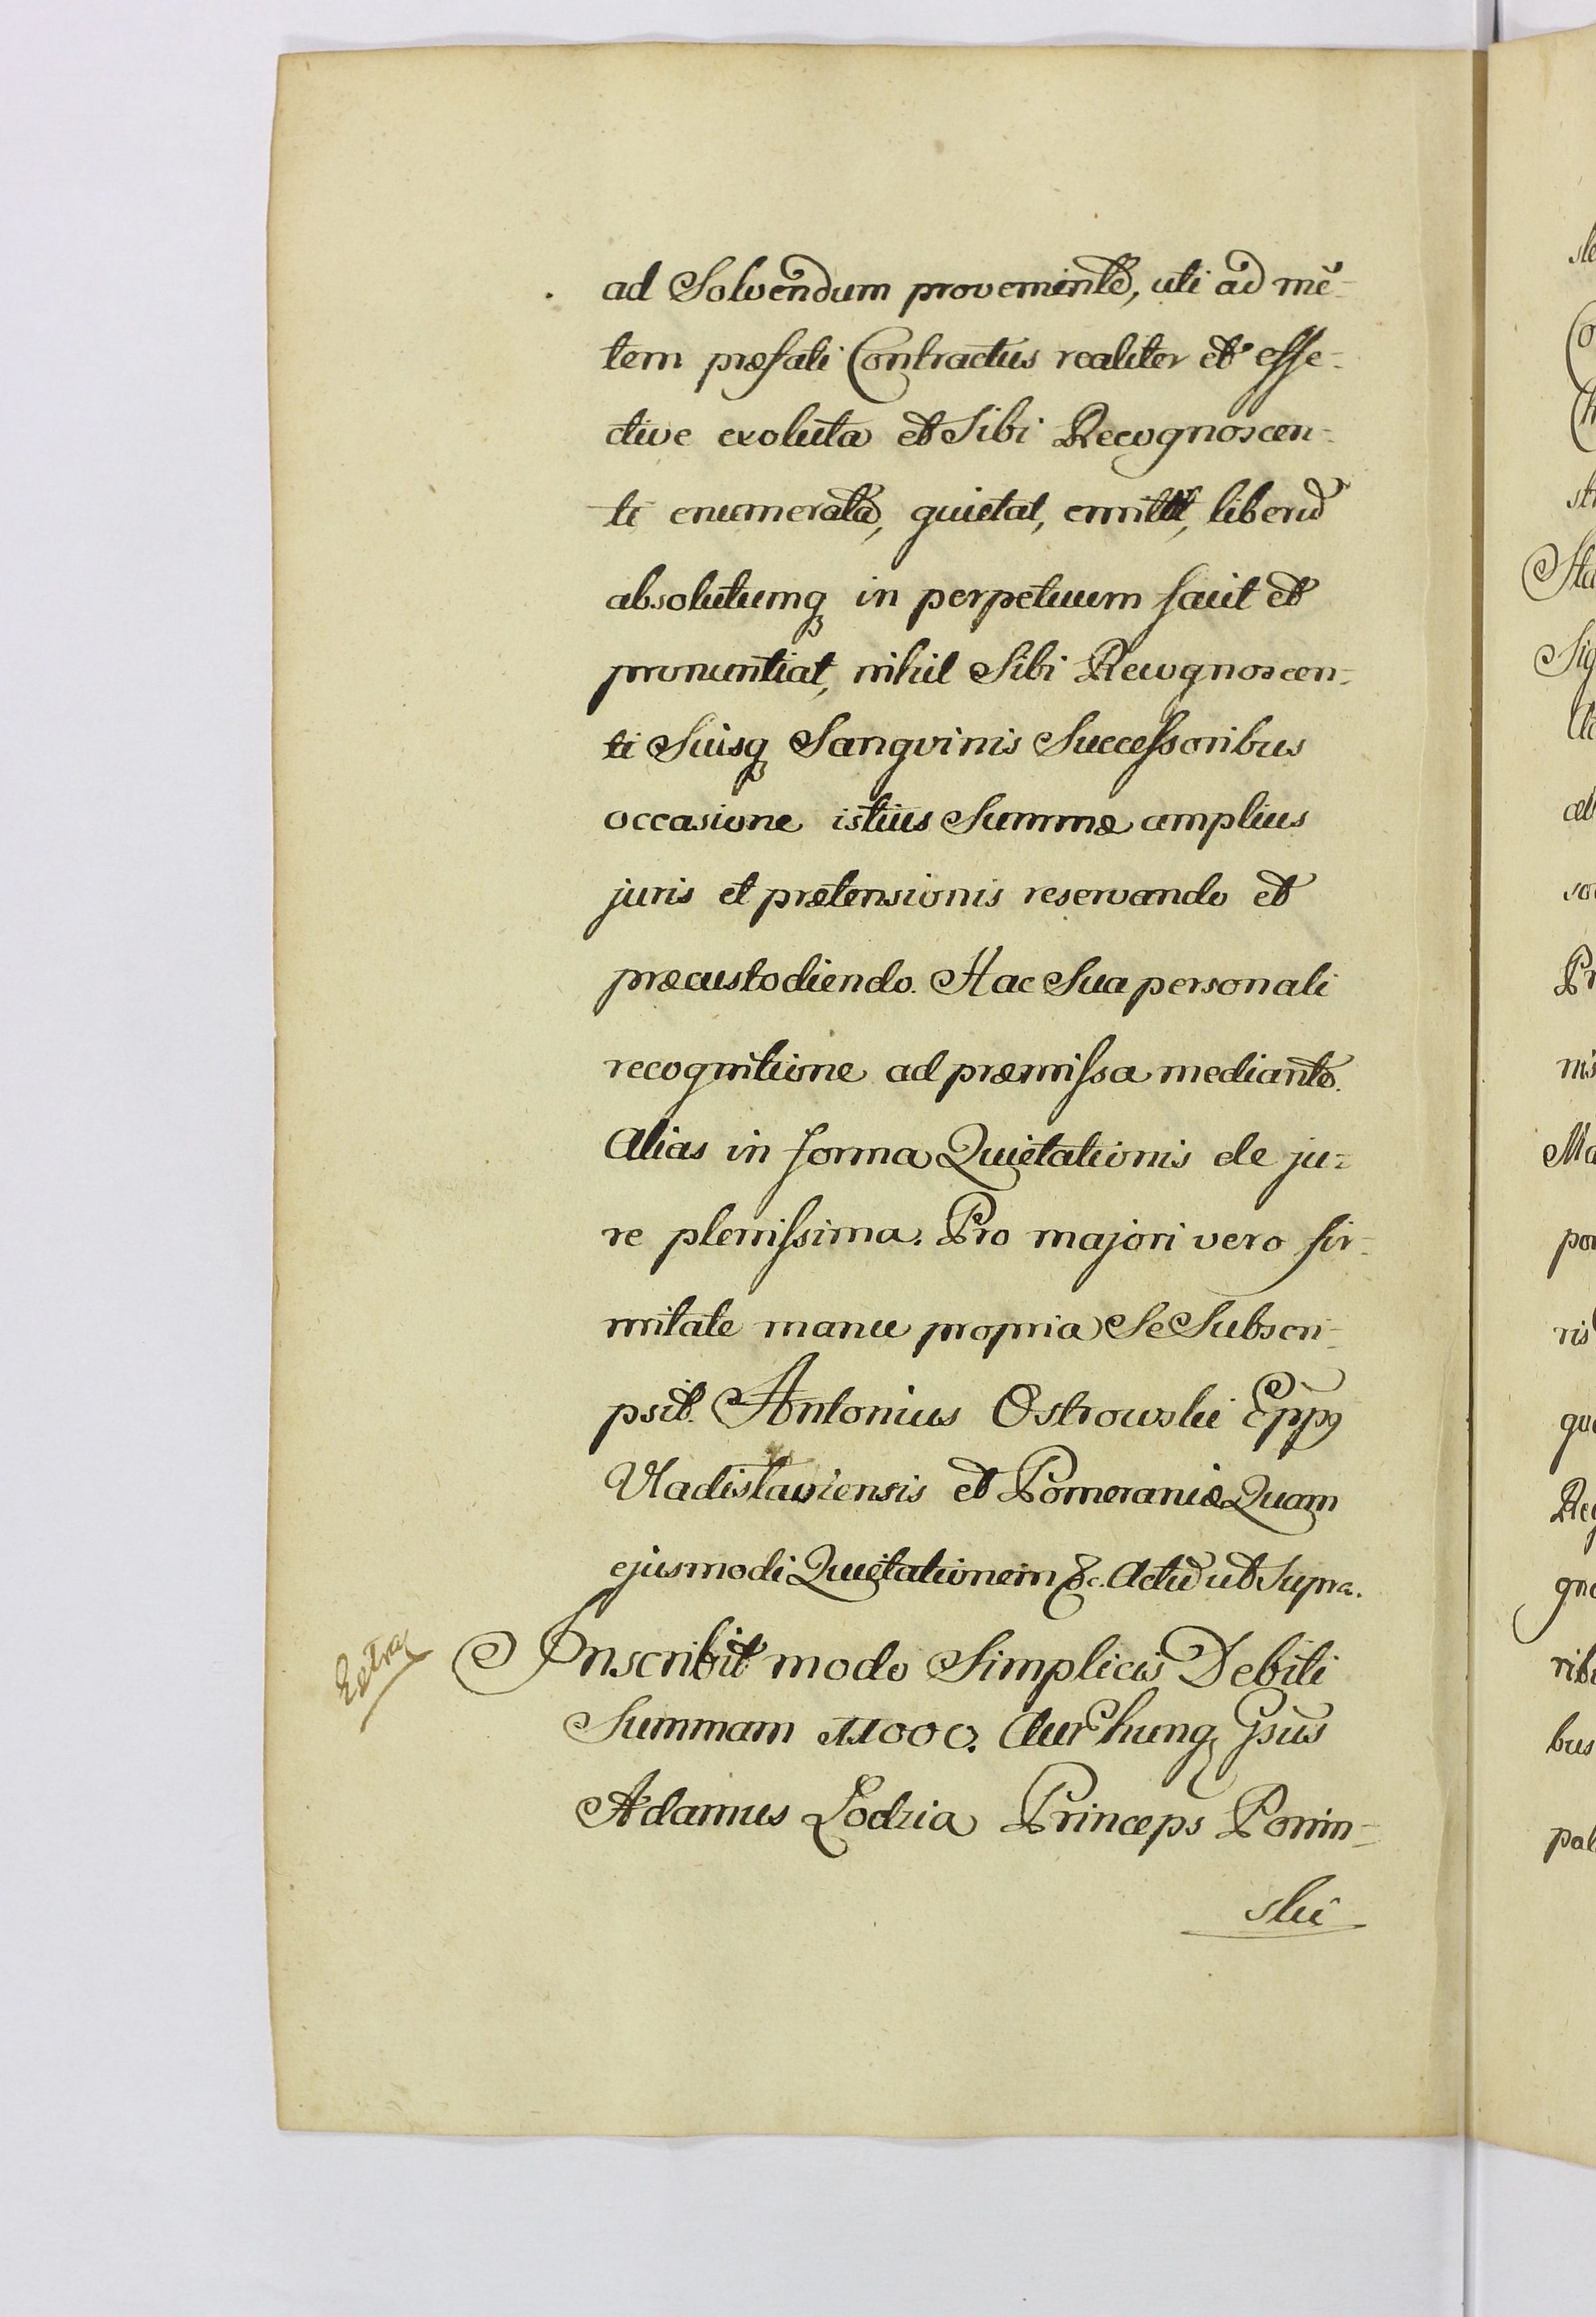 ad Solvendum proveniente, uti ad mē-
tem præfati Contractus realiter et effe-
ctive exoluta et Sibi Recognoscen-
ti enumerata, quietat, emittit, liberū
absolutumq in perpetuum facit et
pronuntiat, nihil Sibi Recognoscen-
ti Suisq Sangvinis Successoribus
occasione istius Summæ amplius
juris et prætensionis reservando et
præcustodiendo. Hac Sua personali
recognitione ad præmissa mediante.
Alias in forma Quietationis de ju-
re plenissima. Pro majori vero fir-
mitate manu propria Se Subscri-
psit. Antonius Ostrowski Eppus
Vladislaviensis et Pomeraniæ Quam
ejusmodi Quietationem &c. Actū ut Supra.
Extra
Inscribit modo Simplicis Debiti
Summam 11000. Aur hung Gsus
Adamus Łodzia Princeps Ponin-
ski